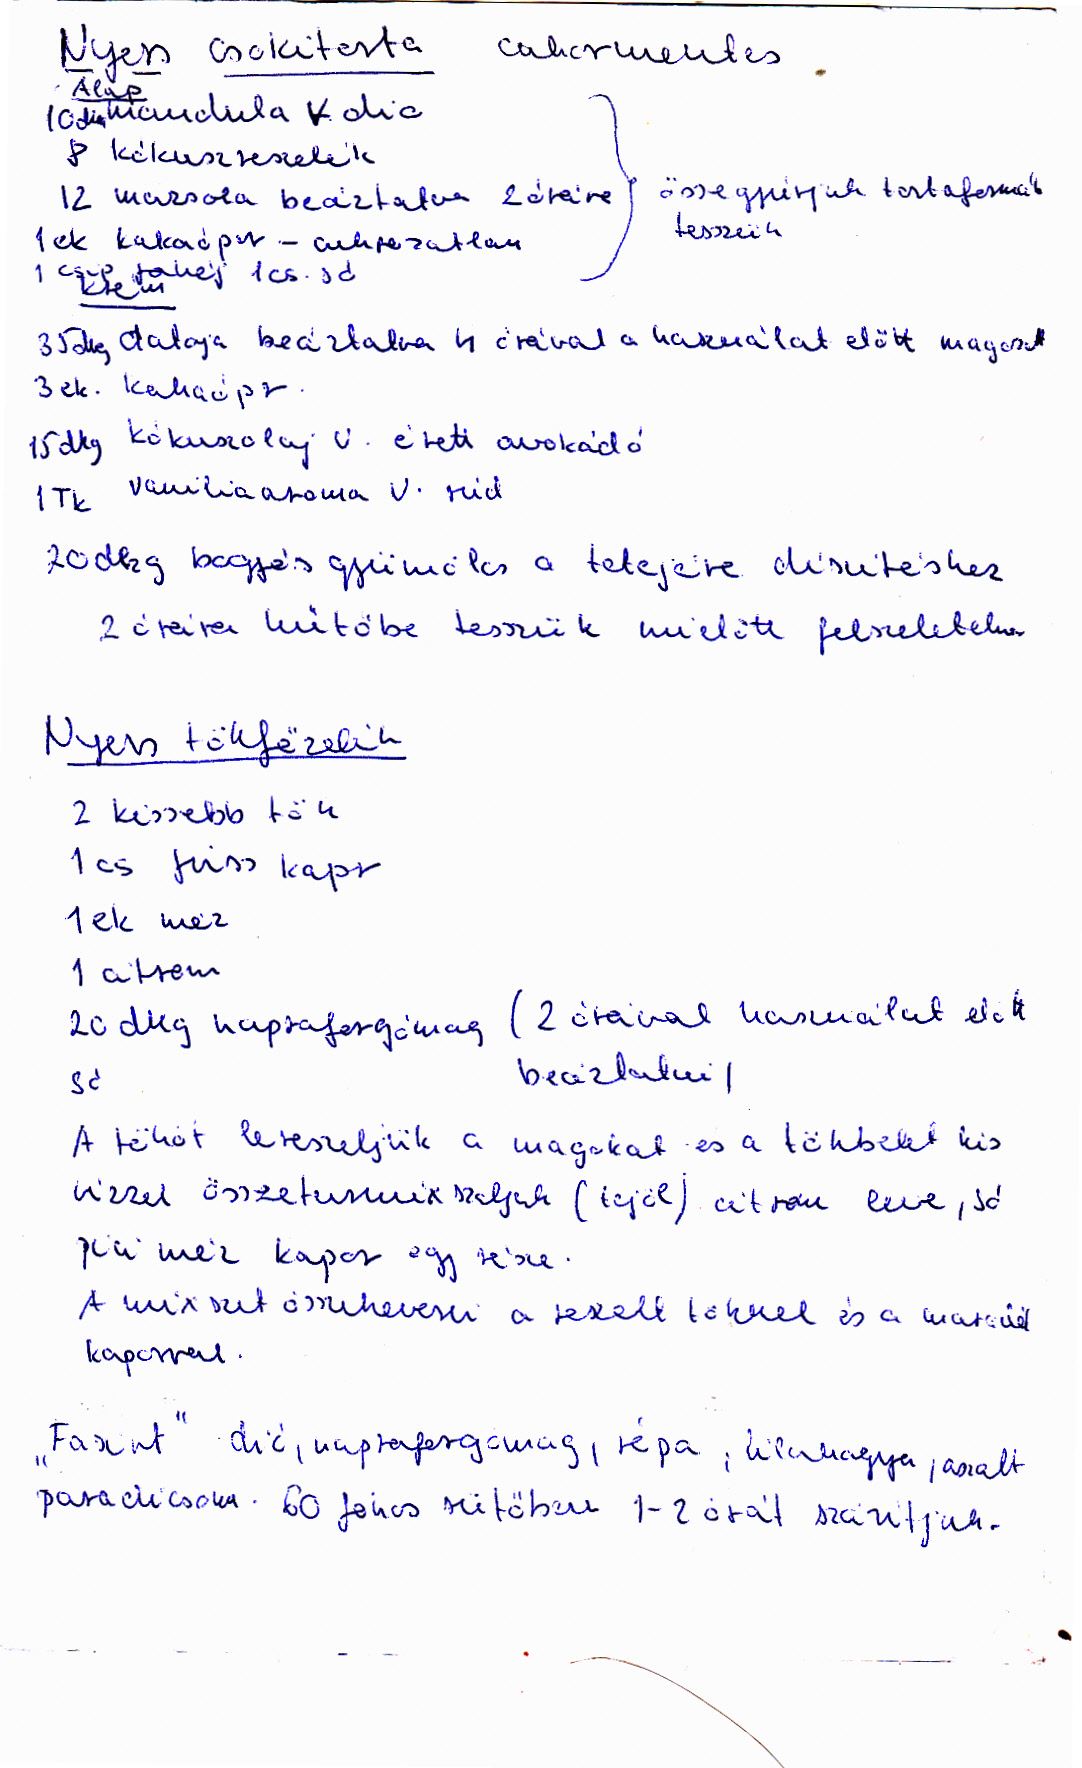 Nyers csokitorta cukormentes
Alap
10 dkg mandula v. dió
8 kókuszreszelék
12 mazsola beáztatva 2 órára } összegyúrjuk tortaformába
tesszük
1 ek kakaópor - cukrozatlan
1 csip fahéj 1 cs. só
Krém
35 dkg datolya beáztatva 4 órával a használat előtt magozott
3 ek. kakaópr.
15 dkg kókuszolaj v. érett avokádó
1 Tk vanília aroma v. rúd
20 dkg bogyós gyümölcs a tetejére díszítéshez
2 órára hűtőbe tesszük mielőtt felszeletelnénk
Nyers tökfőzelék
2 kissebb tök
1 cs friss kapr
1 ek méz
1 citrom
20 dkg napraforgómag (2 órával használat előtt
só beáztatni)
A tököt lereszeljük a magokat és a tökbelet kis
vízzel összeturmixszoljuk (tejföl) citrom leve, só
pici méz kapor egy része.
A mixszet összekeverni a reszelt tökkel és a maradék
kaporral.
"Fasírt" dió, napraforgómag, répa, lilahagyma, aszalt
paradicsom. 60 fokos sütőben 1-2 órát szárítjuk.